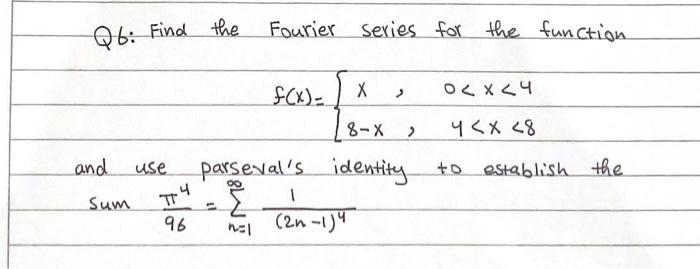 Q6: Find the Fourier series for the function
f(x)= { x , 0<x<4
8-x , 4<x<8
and use parseval's identity to establish the
sum π⁴/96 = ∑_{n=1}^{∞} 1/(2n-1)⁴